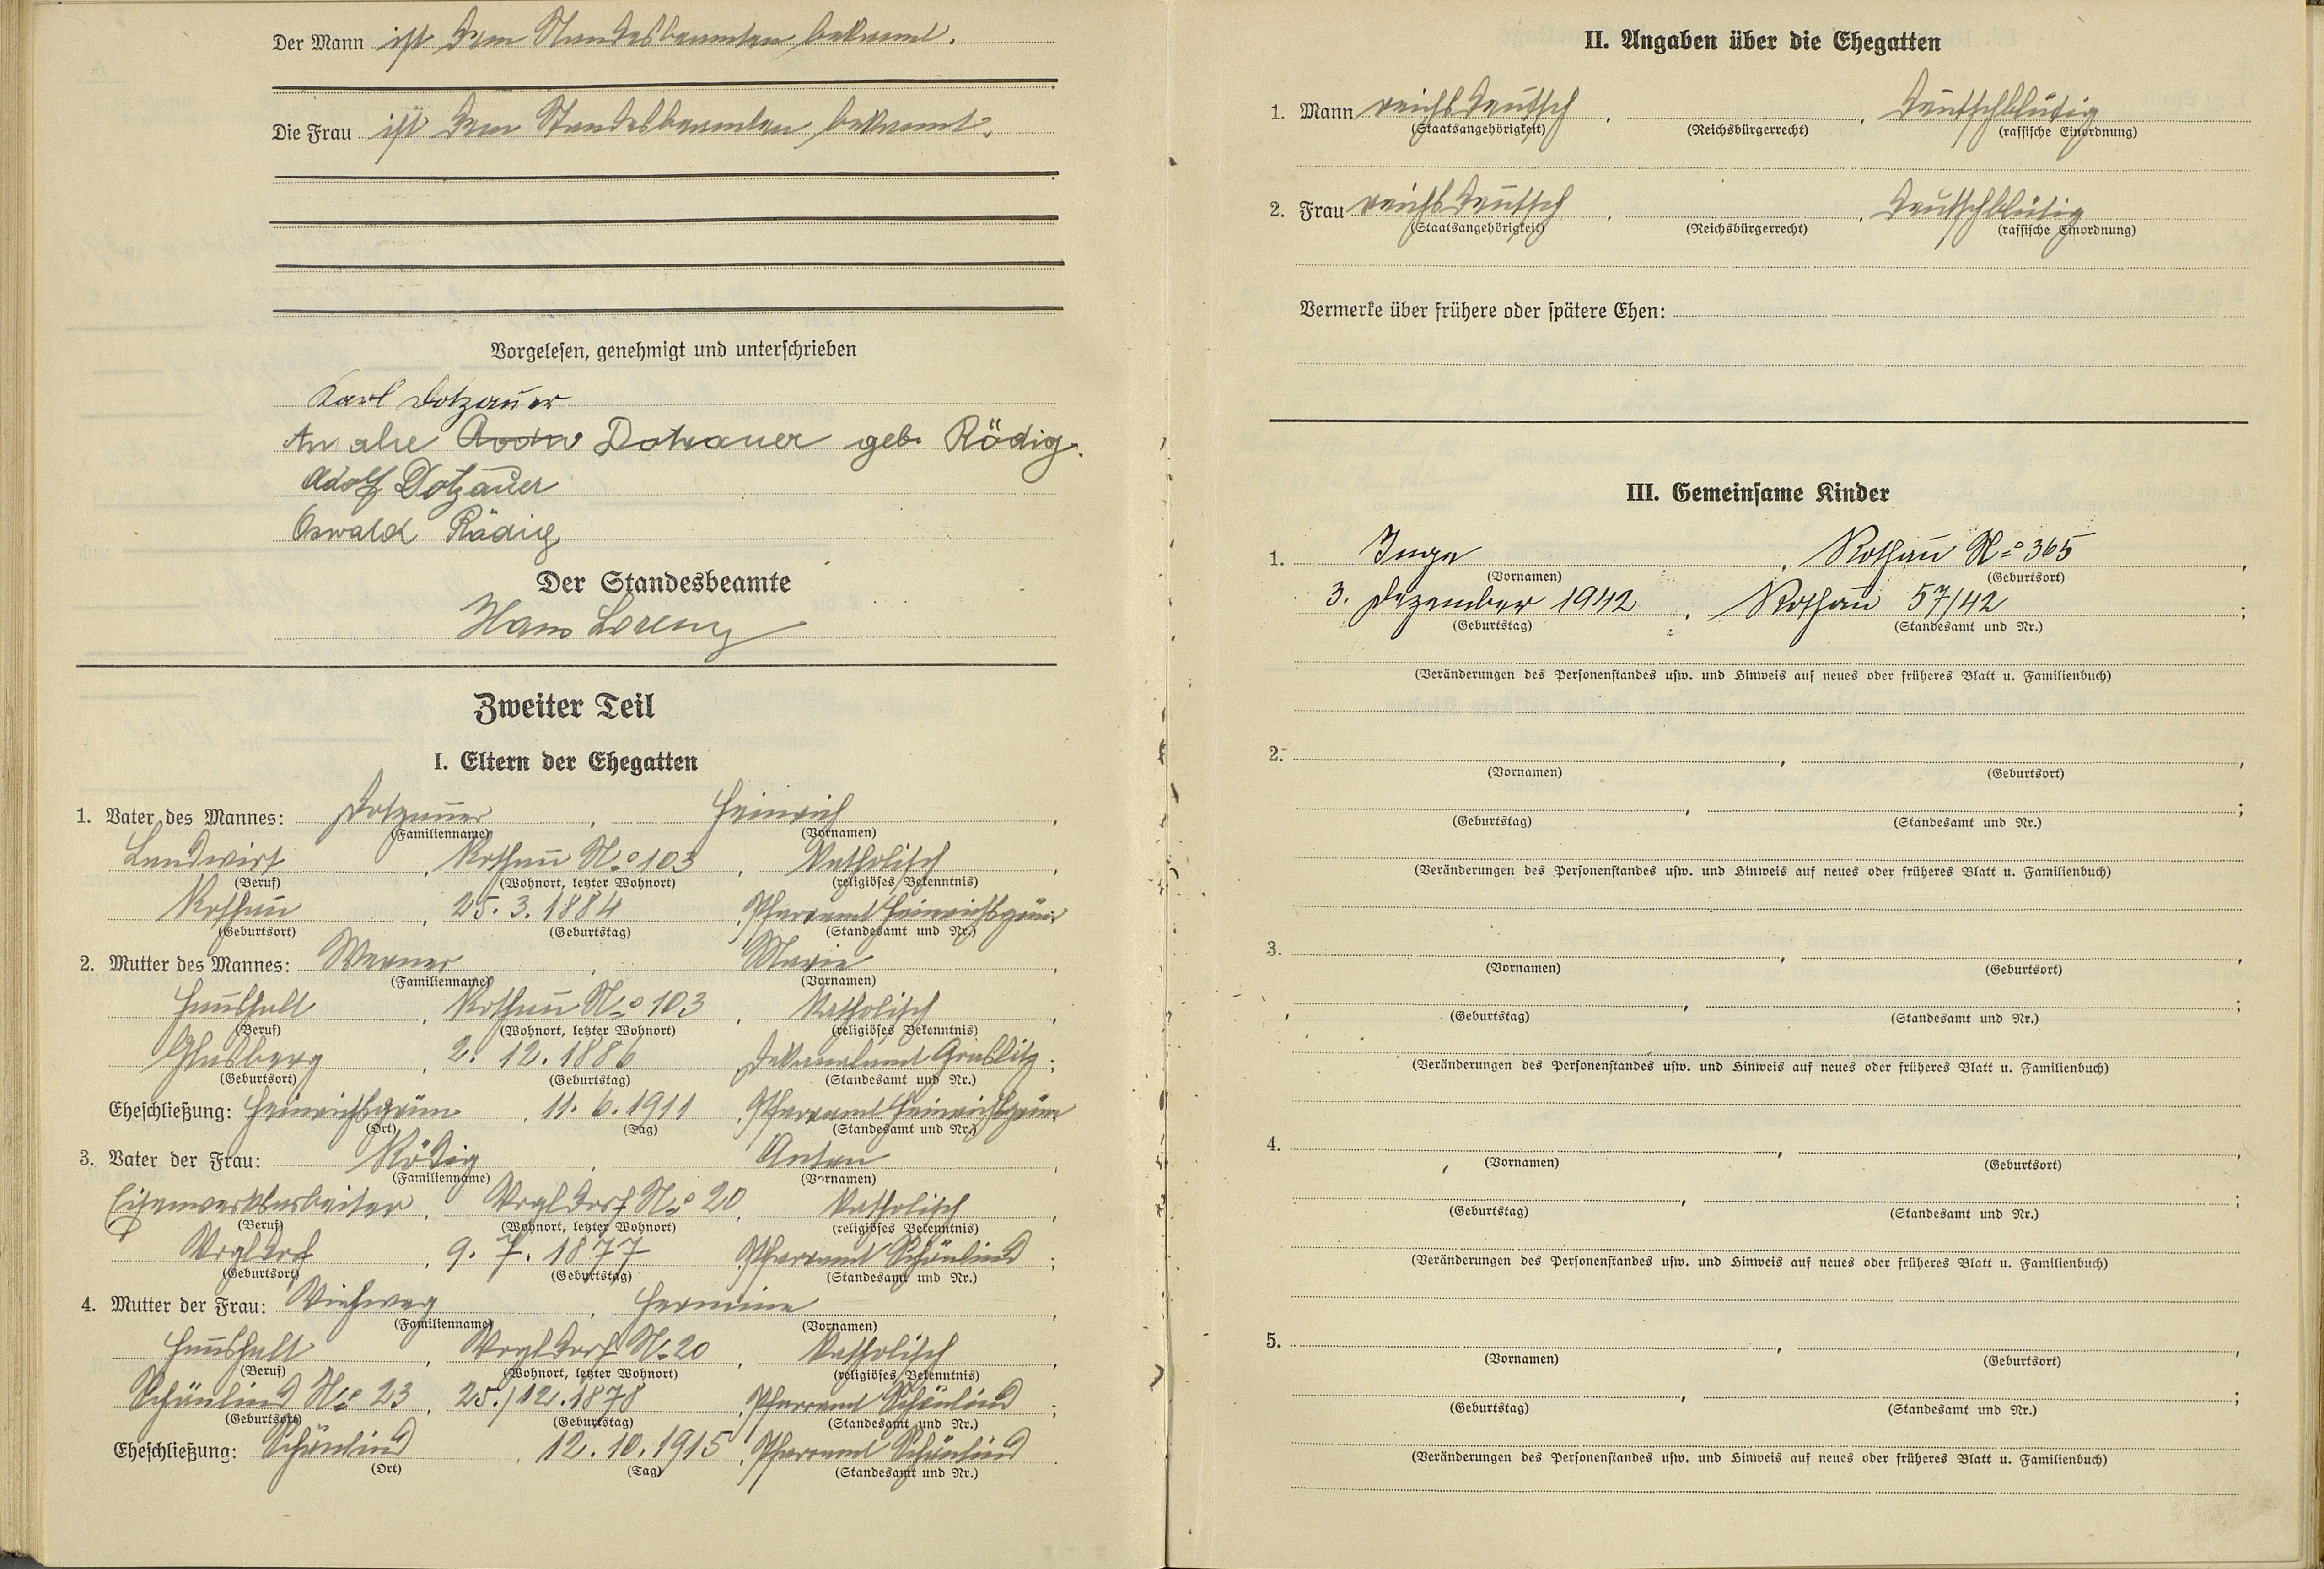 Der Mann ist dem Standesbeamten bekannt.
Die Frau ist dem Standesbeamten bekannt.
Vorgelesen, genehmigt und unterschrieben
Karl Dotzauer
Dotzauer geb. Rödig.
Adolf Dotzauer
Oswald Rödig
Der Standesbeamte
Hans Lorenz
Zweiter Teil
I. Eltern der Ehegatten
1. Vater des Mannes: Dotzauer, Heinrich,
(Familienname) (Vornamen)
Landwirt, Rothau No 103, katholisch,
(Beruf) (Wohnort, letzter Wohnort) (religiöses Bekenntnis)
Rothau, 25. 3. 1884, Pfarramt Heinrichsgrün;
(Geburtsort) (Geburtstag) (Standesamt und Nr.)
2. Mutter des Mannes: Werner, Marie,
(Familienname) (Vornamen)
Haushalt, Rothau No 103, katholisch,
(Beruf) (Wohnort, letzter Wohnort) (religiöses Bekenntnis)
Glasberg, 2. 12. 1886, Dekanalamt Graslitz;
(Geburtsort) (Geburtstag) (Standesamt und Nr.)
Eheschließung: Heinrichsgrün, 11. 6. 1911, Pfarramt Heinrichsgrün
(Ort) (Tag) (Standesamt und Nr.)
3. Vater der Frau: Rödig, Anton,
(Familienname) (Vornamen)
Eisenwerksarbeiter, Vogldorf No 20, katholisch,
(Beruf) (Wohnort, letzter Wohnort) (religiöses Bekenntnis)
Vogldorf, 9. 7. 1877, Pfarramt Schönlind;
(Geburtsort) (Geburtstag) (Standesamt und Nr.)
4. Mutter der Frau: Viehweg, Hermine,
(Familienname) (Vornamen)
Haushalt, Vogldorf No 20, katholisch,
(Beruf) (Wohnort, letzter Wohnort) (religiöses Bekenntnis)
Schönlind No 23, 25./12. 1878, Pfarramt Schönlind;
(Geburtsort) (Geburtstag) (Standesamt und Nr.)
Eheschließung: Schönlind, 12. 10. 1915, Pfarramt Schönlind.
(Ort) (Tag) (Standesamt und Nr.)
II. Angaben über die Ehegatten
1. Mann reichsdeutsch, , deutschblütig
(Staatsangehörigkeit) (Reichsbürgerrecht) (rassische Einordnung)
2. Frau reichsdeutsch, , deutschblütig
(Staatsangehörigkeit) (Reichsbürgerrecht) (rassische Einordnung)
Vermerke über frühere oder spätere Ehen:
III. Gemeinsame Kinder
1. Inge, Rothau No 365,
(Vornamen) (Geburtsort)
3. Dezember 1942, Rothau 57/42;
(Geburtstag) (Standesamt und Nr.)
(Veränderungen des Personenstandes usw. und Hinweis auf neues oder früheres Blatt u. Familienbuch)
2. , ,
(Vornamen) (Geburtsort)
, ;
(Geburtstag) (Standesamt und Nr.)
(Veränderungen des Personenstandes usw. und Hinweis auf neues oder früheres Blatt u. Familienbuch)
3. , ,
(Vornamen) (Geburtsort)
, ;
(Geburtstag) (Standesamt und Nr.)
(Veränderungen des Personenstandes usw. und Hinweis auf neues oder früheres Blatt u. Familienbuch)
4. , ,
(Vornamen) (Geburtsort)
, ;
(Geburtstag) (Standesamt und Nr.)
(Veränderungen des Personenstandes usw. und Hinweis auf neues oder früheres Blatt u. Familienbuch)
5. , ,
(Vornamen) (Geburtsort)
, ;
(Geburtstag) (Standesamt und Nr.)
(Veränderungen des Personenstandes usw. und Hinweis auf neues oder früheres Blatt u. Familienbuch)